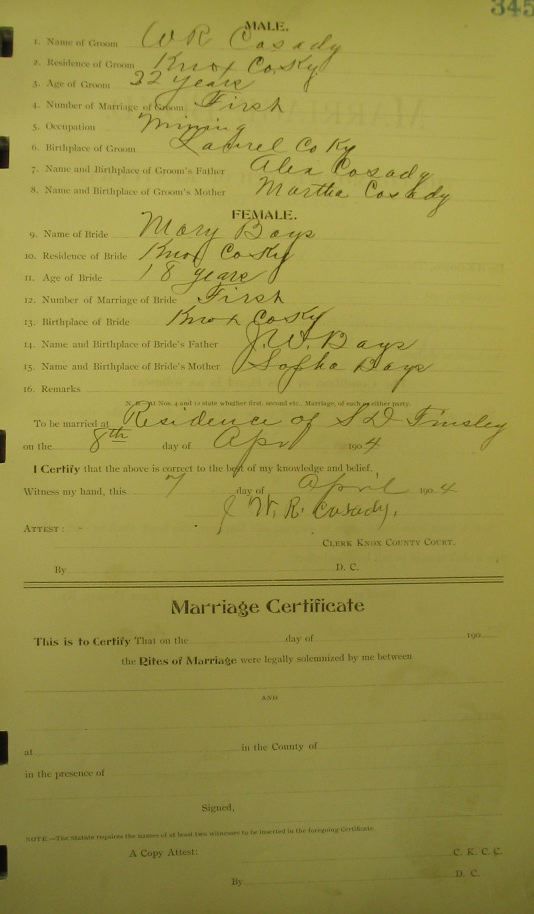 345
MALE.
1. Name of Groom W R Casady
2. Residence of Groom Knox Co Ky
3. Age of Groom 22 years
4. Number of Marriage of Groom First
5. Occupation Mining
6. Birthplace of Groom Laurel Co Ky
7. Name and Birthplace of Groom's Father Alex Casady
8. Name and Birthplace of Groom's Mother Martha Casady
FEMALE.
9. Name of Bride Mary Bays
10. Residence of Bride Knox Co Ky
11. Age of Bride 18 years
12. Number of Marriage of Bride First
13. Birthplace of Bride Knox Co Ky
14. Name and Birthplace of Bride's Father J. W. Bays
15. Name and Birthplace of Bride's Mother Sopha Bays
16. Remarks
N. B.—At Nos. 4 and 12 state whether first, second etc., Marriage, of each or either party.
To be married at Residence of S D Tinsley
on the 8th day of Apr 1904
I Certify that the above is correct to the best of my knowledge and belief.
Witness my hand, this 7 day of April 1904
W. R. Casady.
ATTEST:
CLERK KNOX COUNTY COURT.
By D. C.
Marriage Certificate
This is to Certify That on the day of 190
the Rites of Marriage were legally solemnized by me between
AND
at in the County of
in the presence of
Signed,
NOTE.—The Statute requires the names of at least two witnesses to be inserted in the foregoing Certificate.
A Copy Attest: C. K. C. C.
By D. C.